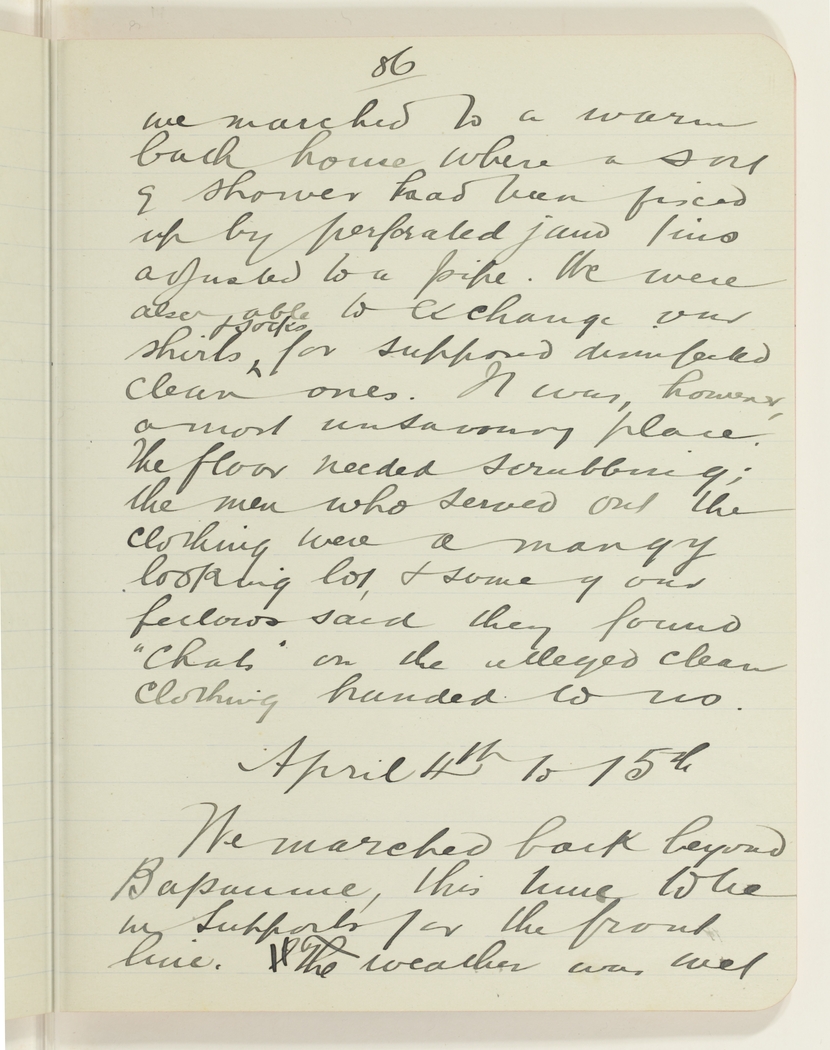 86
we marched to a warm
bath house where a sort
of shower had been fixed
up by perforated jam tins
adjusted to a pipe. We were
also able to exchange our
& socks
shirts ^ for supposed disinfected
clean ones. It was, however,
a most unsavoury place.
The floor needed scrubbing;
the men who served out the
clothing were a mangy
looking lot, & some of our
fellows said they found
"Chats" on the alleged clean
clothing handed to us.
April 4th to 15th
We marched back beyond
Bapaume, this time to be
in Supports for the front
line. The weather was wet